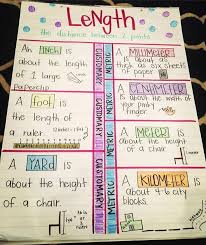 LENGTH
the distance between 2 points
An inch is
about the length
of 1 large
paperclip
A foot is
the length of
a ruler.
A YARD is
about the height
of a chair.
CUSTOMARY
CUSTOMARY
CUSTOMARY
METRIC
METRIC
METRIC
A MILLIMETER
is about as
thick as six sheets
of paper
A CENTIMETER
is about the width of
your pinky
finger.
A METER is
about the height
of a chair.
A KILOMETER is
about 4-6 city
blocks.